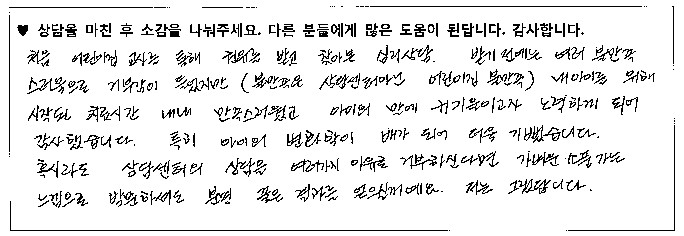 ♥ 상담을 마친 후 소감을 나눠주세요. 다른 분들에게 많은 도움이 된답니다. 감사합니다.
처음 어린이집 교사를 통해 권유를 받고 찾아온 심리상담. 받기 전에는 여러 불만족
스러움으로 거부감이 들었지만 (불만족은 상담센터아닌 어린이집 불만족) 내아이를 위해
시작된 치료시간 내내 만족스러웠고 아이의 말에 귀기울이고자 노력하게 되어
감사했습니다. 특히 아이의 변화 배가 되어 더욱 기뻤습니다.
혹시라도 상담센터의 상담을 여러가지 이유로 거부하신다면 가벼운 소풍가는
느낌으로 방문하셔도 분명 좋은 결과를 얻으실거예요. 저는 그랬답니다.